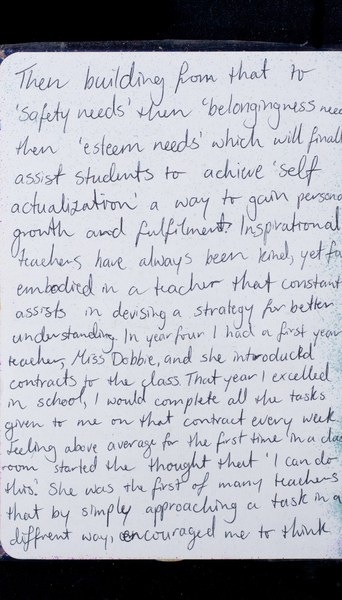 Then building from that to
'safety needs' then 'belongingness nee
then 'esteem needs' which will finall
assist students to achieve 'self
actualization' a way to gain persona
growth and fulfilment. Inspirational
teachers have always been kind, yet fa
embodied in a teacher that constant
assists in devising a strategy for better
understanding. In year four I had a first year
teacher, Miss Dobbie, and she introducd
contracts to the class. That year I excelled
in school, I would complete all the tasks
given to me on that contract every week.
Feeling above average for the first time in a clas
room started the thought that 'I can do
this.' She was the first of many teachers
that by simply approaching a task in a
diffrent way, encouraged me to think